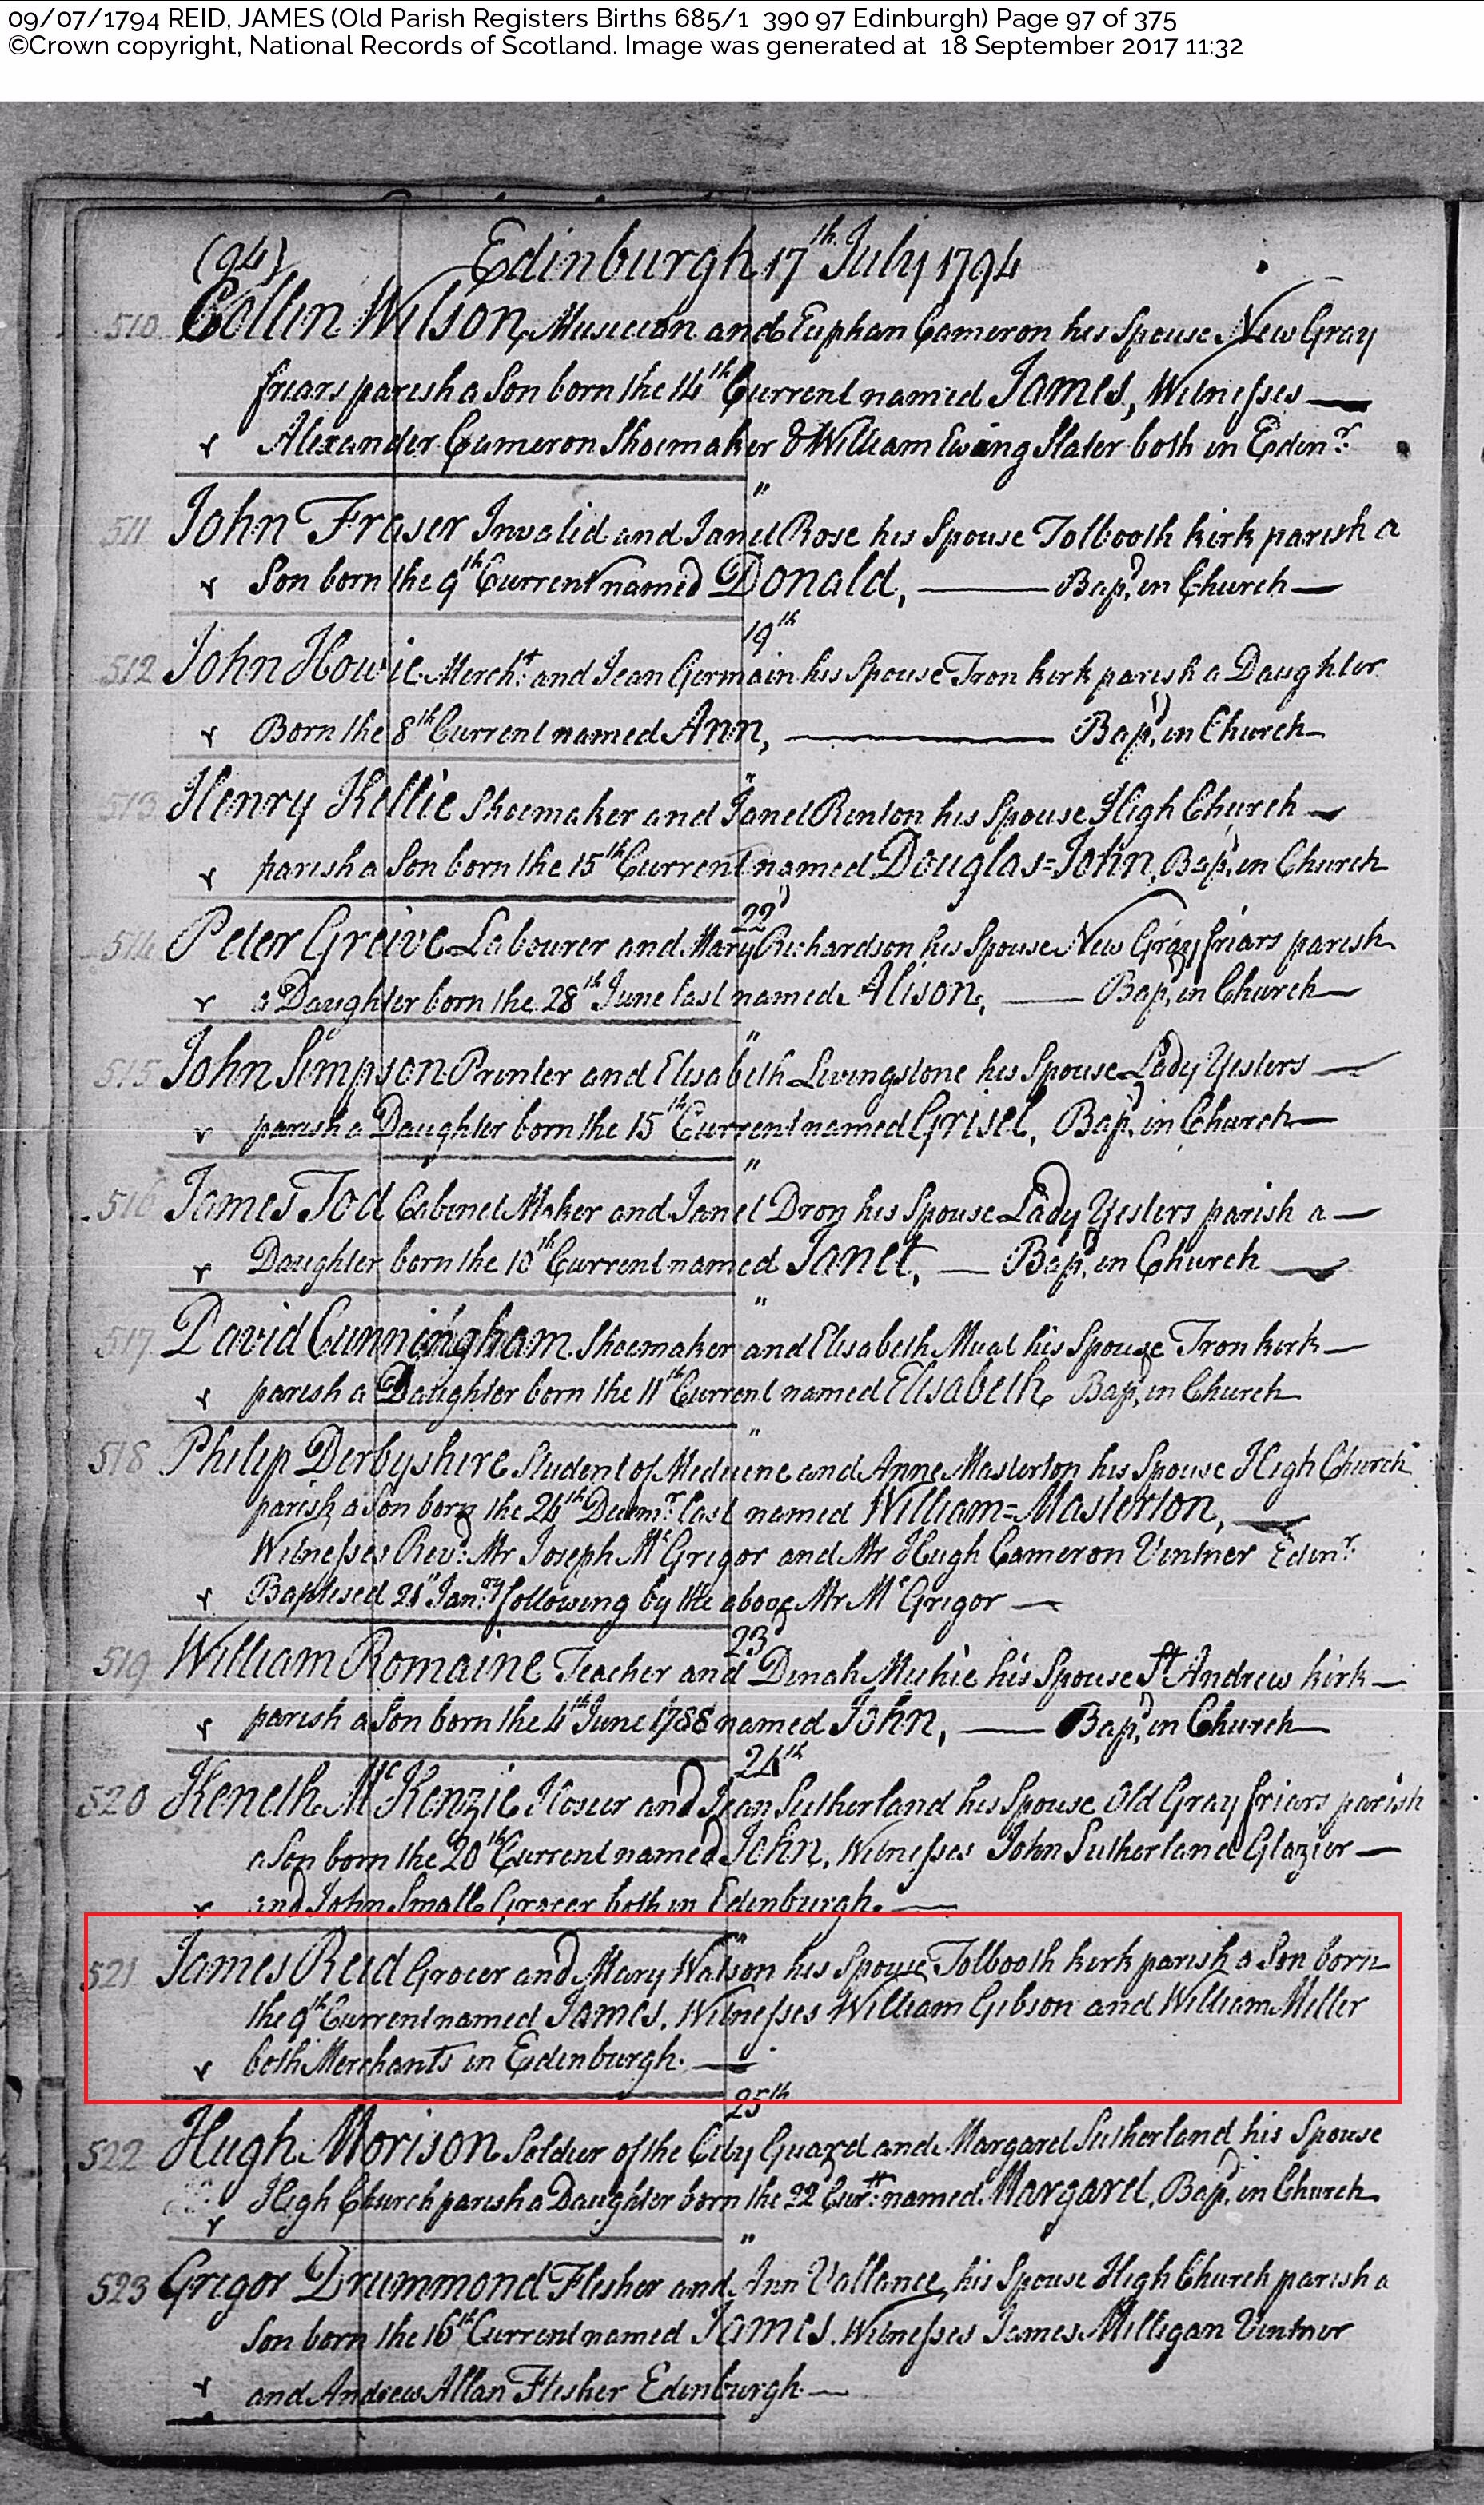 09/07/1794 REID, JAMES (Old Parish Registers Births 685/1 390 97 Edinburgh) Page 97 of 375
©Crown copyright, National Records of Scotland. Image was generated at 18 September 2017 11:32
(94) Edinburgh 17th July 1794
510 Collin Wilson, Musician and Euphan Cameron his Spouse New Gray
friars parish a Son born the 14th Current named James, Witnesses —
Alexander Cameron Shoemaker & William Ewing Slater both in Edinr
"
511 John Fraser Invalid and Janet Rose his Spouse Tolbooth kirk parish a
Son born the 9th Current named Donald, — Bapd in Church —
19th
512 John Howie Mercht and Jean Germain his Spouse Tron kirk parish a Daughter
Born the 8th Current named Ann, — Bapd in Church —
"
513 Henry Kellie Shoemaker and Janet Renton his Spouse High Church —
parish a Son born the 15th Current named Douglas=John, Bapd in Church
22d
514 Peter Greive Labourer and Mary Richardson his Spouse New Gray friars parish
a Daughter born the 28th June last named Alison, — Bapd in Church —
"
515 John Simpson Printer and Elisabeth Livingstone his Spouse Lady Yesters —
parish a Daughter born the 15th Current named Grisel, Bapd in Church —
"
516 James Tod Cabinet Maker and Janet Dron his Spouse Lady Yesters parish a —
Daughter born the 10th Current named Janet, — Bapd in Church —
"
517 David Cunningham Shoemaker and Elisabeth his Spouse Tron kirk —
parish a Daughter born the 11th Current named Elisabeth, Bapd in Church
"
518 Philip Derbyshire Student of Medicine and Anne Masterton his Spouse High Church
parish a Son born the 24th Decemr last named William=Masterton, —
Witnesses Revd Mr Joseph McGrigor and Mr Hugh Cameron Vintner Edinr
Baptised 21st Janry following by the above Mr McGrigor —
23d
519 William Romaine Teacher and Dinah Michie his Spouse St Andrew kirk —
parish a Son born the 4th June 1788 named John, — Bapd in Church —
24th
520 Keneth McKenzie Hosier and Jean Sutherland his Spouse Old Gray friars parish
a Son born the 20th Current named John, Witnesses John Sutherland Glazier —
and John Small Grocer both in Edinburgh. —
"
521 James Reid Grocer and Mary Watson his Spouse Tolbooth kirk parish a Son born
the 9th Current named James, Witnesses William Gibson and William Miller
both Merchants in Edinburgh. —
25th
522 Hugh Morison Soldier of the City Guard and Margaret Sutherland his Spouse
High Church parish a Daughter born the 22 Curt named Margaret, Bapd in Church
"
523 Grigor Drummond Flesher and Ann Vallance his Spouse High Church parish a
Son born the 16th Current named James, Witnesses James Milligan Vintner
and Andrew Allan Flesher Edinburgh —